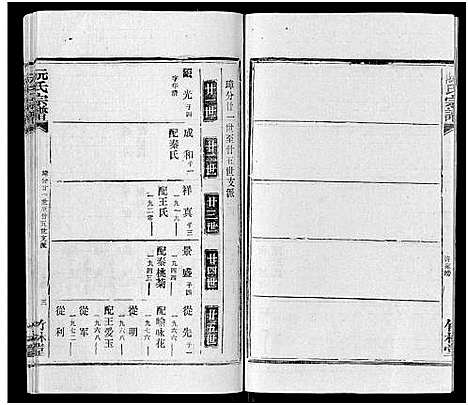 阮氏宗譜
璋分廿一世至廿五世支派
廿一世
廿二世
廿三世
廿四世
廿五世
顯光 子四
字年清
成和 子一
配秦氏
祥真 子三
一九一九
配王氏
一九二零
景盛 子四
一九四四
配秦桃菊
一九四三
從先 子一
一九六二
配喻咏花
一九六六
從明
一九六八
配王愛玉
一九六八
從軍
一九七二
從利
璋分廿一世至廿五世支派
三
竹林堂
阮氏宗譜
竹林堂